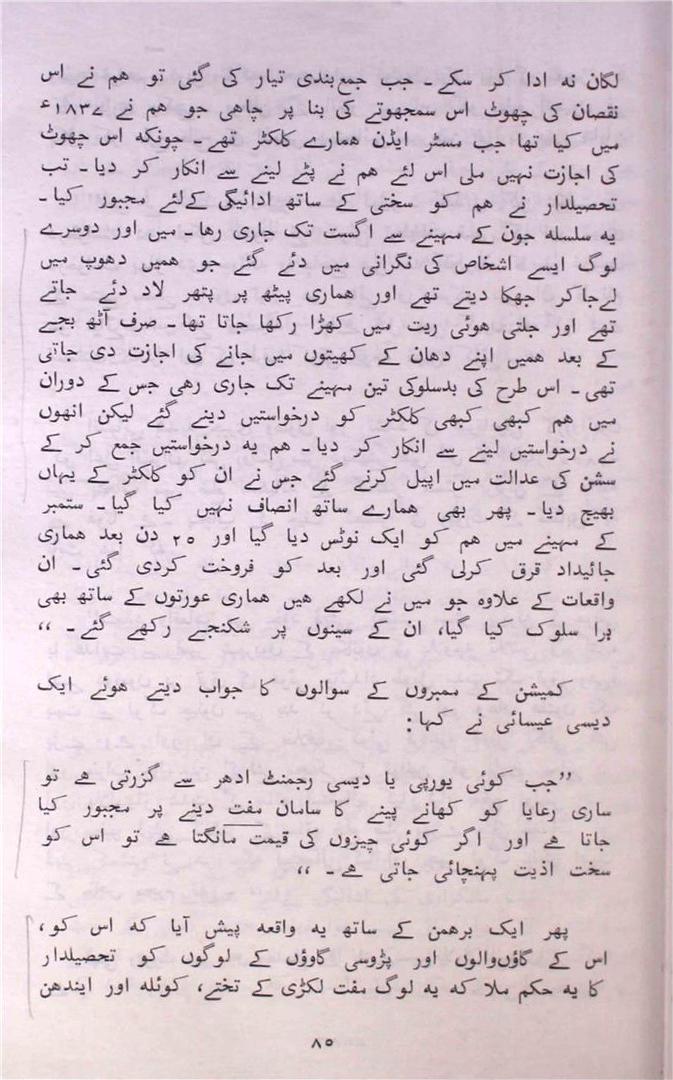 لگان نه ادا کر سکے۔ جب جمع‌بندی تیار کی گئی تو هم نے اس
نقصان کی چھوٹ اس سمجھوتے کی بنا پر چاهی جو هم نے ۱۸۳۷ء
میں کیا تھا جب مسٹر ایڈن همارے کلکٹر تھے۔ چونکه اس چھوٹ
کی اجازت نہیں ملی اس لئے هم نے پٹے لینے سے انکار کر دیا۔ تب
تحصیلدار نے هم کو سختی کے ساتھ ادائیگی کےلئے مجبور کیا۔
یه سلسله جون کے مہینے سے اگست تک جاری رها۔ میں اور دوسرے
لوگ ایسے اشخاص کی نگرانی میں دئے گئے جو همیں دھوپ میں
لےجاکر جھکا دیتے تھے اور هماری پیٹھ پر پتھر لاد دئے جاتے
تھے اور جلتی هوئی ریت میں کھڑا رکھا جاتا تھا۔ صرف آٹھ بجے
کے بعد همیں اپنے دھان کے کھیتوں میں جانے کی اجازت دی جاتی
تھی۔ اس طرح کی بدسلوکی تین مہینے تک جاری رهی جس کے دوران
میں هم کبھی کبھی کلکٹر کو درخواستیں دینے گئے لیکن انھوں
نے درخواستیں لینے سے انکار کر دیا۔ هم یه درخواستیں جمع کر کے
سشن کی عدالت میں اپیل کرنے گئے جس نے ان کو کلکٹر کے یہاں
بھیج دیا۔ پھر بھی همارے ساتھ انصاف نہیں کیا گیا۔ ستمبر
کے مہینے میں هم کو ایک نوٹس دیا گیا اور ۲۵ دن بعد هماری
جائیداد قرق کرلی گئی اور بعد کو فروخت کردی گئی۔ ان
واقعات کے علاوه جو میں نے لکھے هیں هماری عورتوں کے ساتھ بھی
برا سلوک کیا گیا، ان کے سینوں پر شکنجے رکھے گئے۔ ‘‘
کمیشن کے ممبروں کے سوالوں کا جواب دیتے هوئے ایک
دیسی عیسائی نے کہا:
’’جب کوئی یورپی یا دیسی رجمنٹ ادھر سے گزرتی هے تو
ساری رعایا کو کھانے پینے کا سامان مفت دینے پر مجبور کیا
جاتا هے اور اگر کوئی چیزوں کی قیمت مانگتا هے تو اس کو
سخت اذیت پہنچائی جاتی هے۔ ‘‘
پھر ایک برهمن کے ساتھ یه واقعه پیش آیا که اس کو،
اس کے گاؤں‌والوں اور پڑوسی گاوؤں کے لوگوں کو تحصیلدار
کا یه حکم ملا که یه لوگ مفت لکڑی کے تختے، کوئله اور ایندھن
۸۵